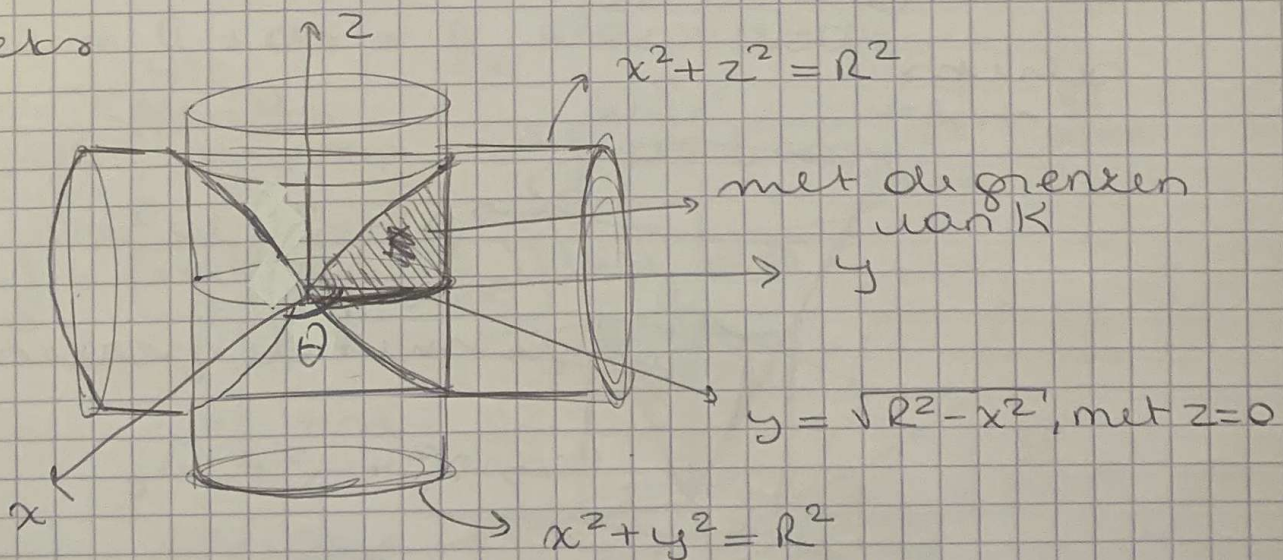 z
x² + z² = R²
met de grenzen
van K
y
θ
y = √R² - x², met z = 0
x
x² + y² = R²